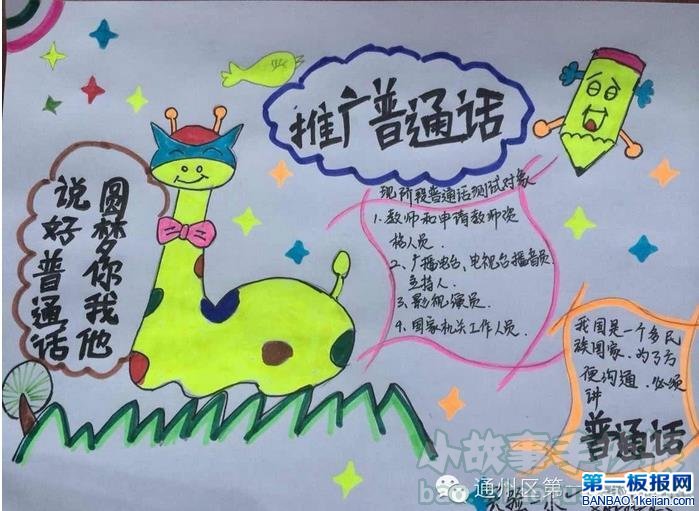 推广普通话
说好普通话
圆梦你我他
现阶段普通话测试对象
1、教师和申请教师资
格人员.
2、广播电台、电视台播音员
主持人.
3、影视演员.
4、国家机关工作人员.
我国是一个多民
族国家.为了方
便沟通.必须
讲
普通话
小故事手抄报
通州区第一
实验一小
第一板报网
BANBAO.1kejian.com